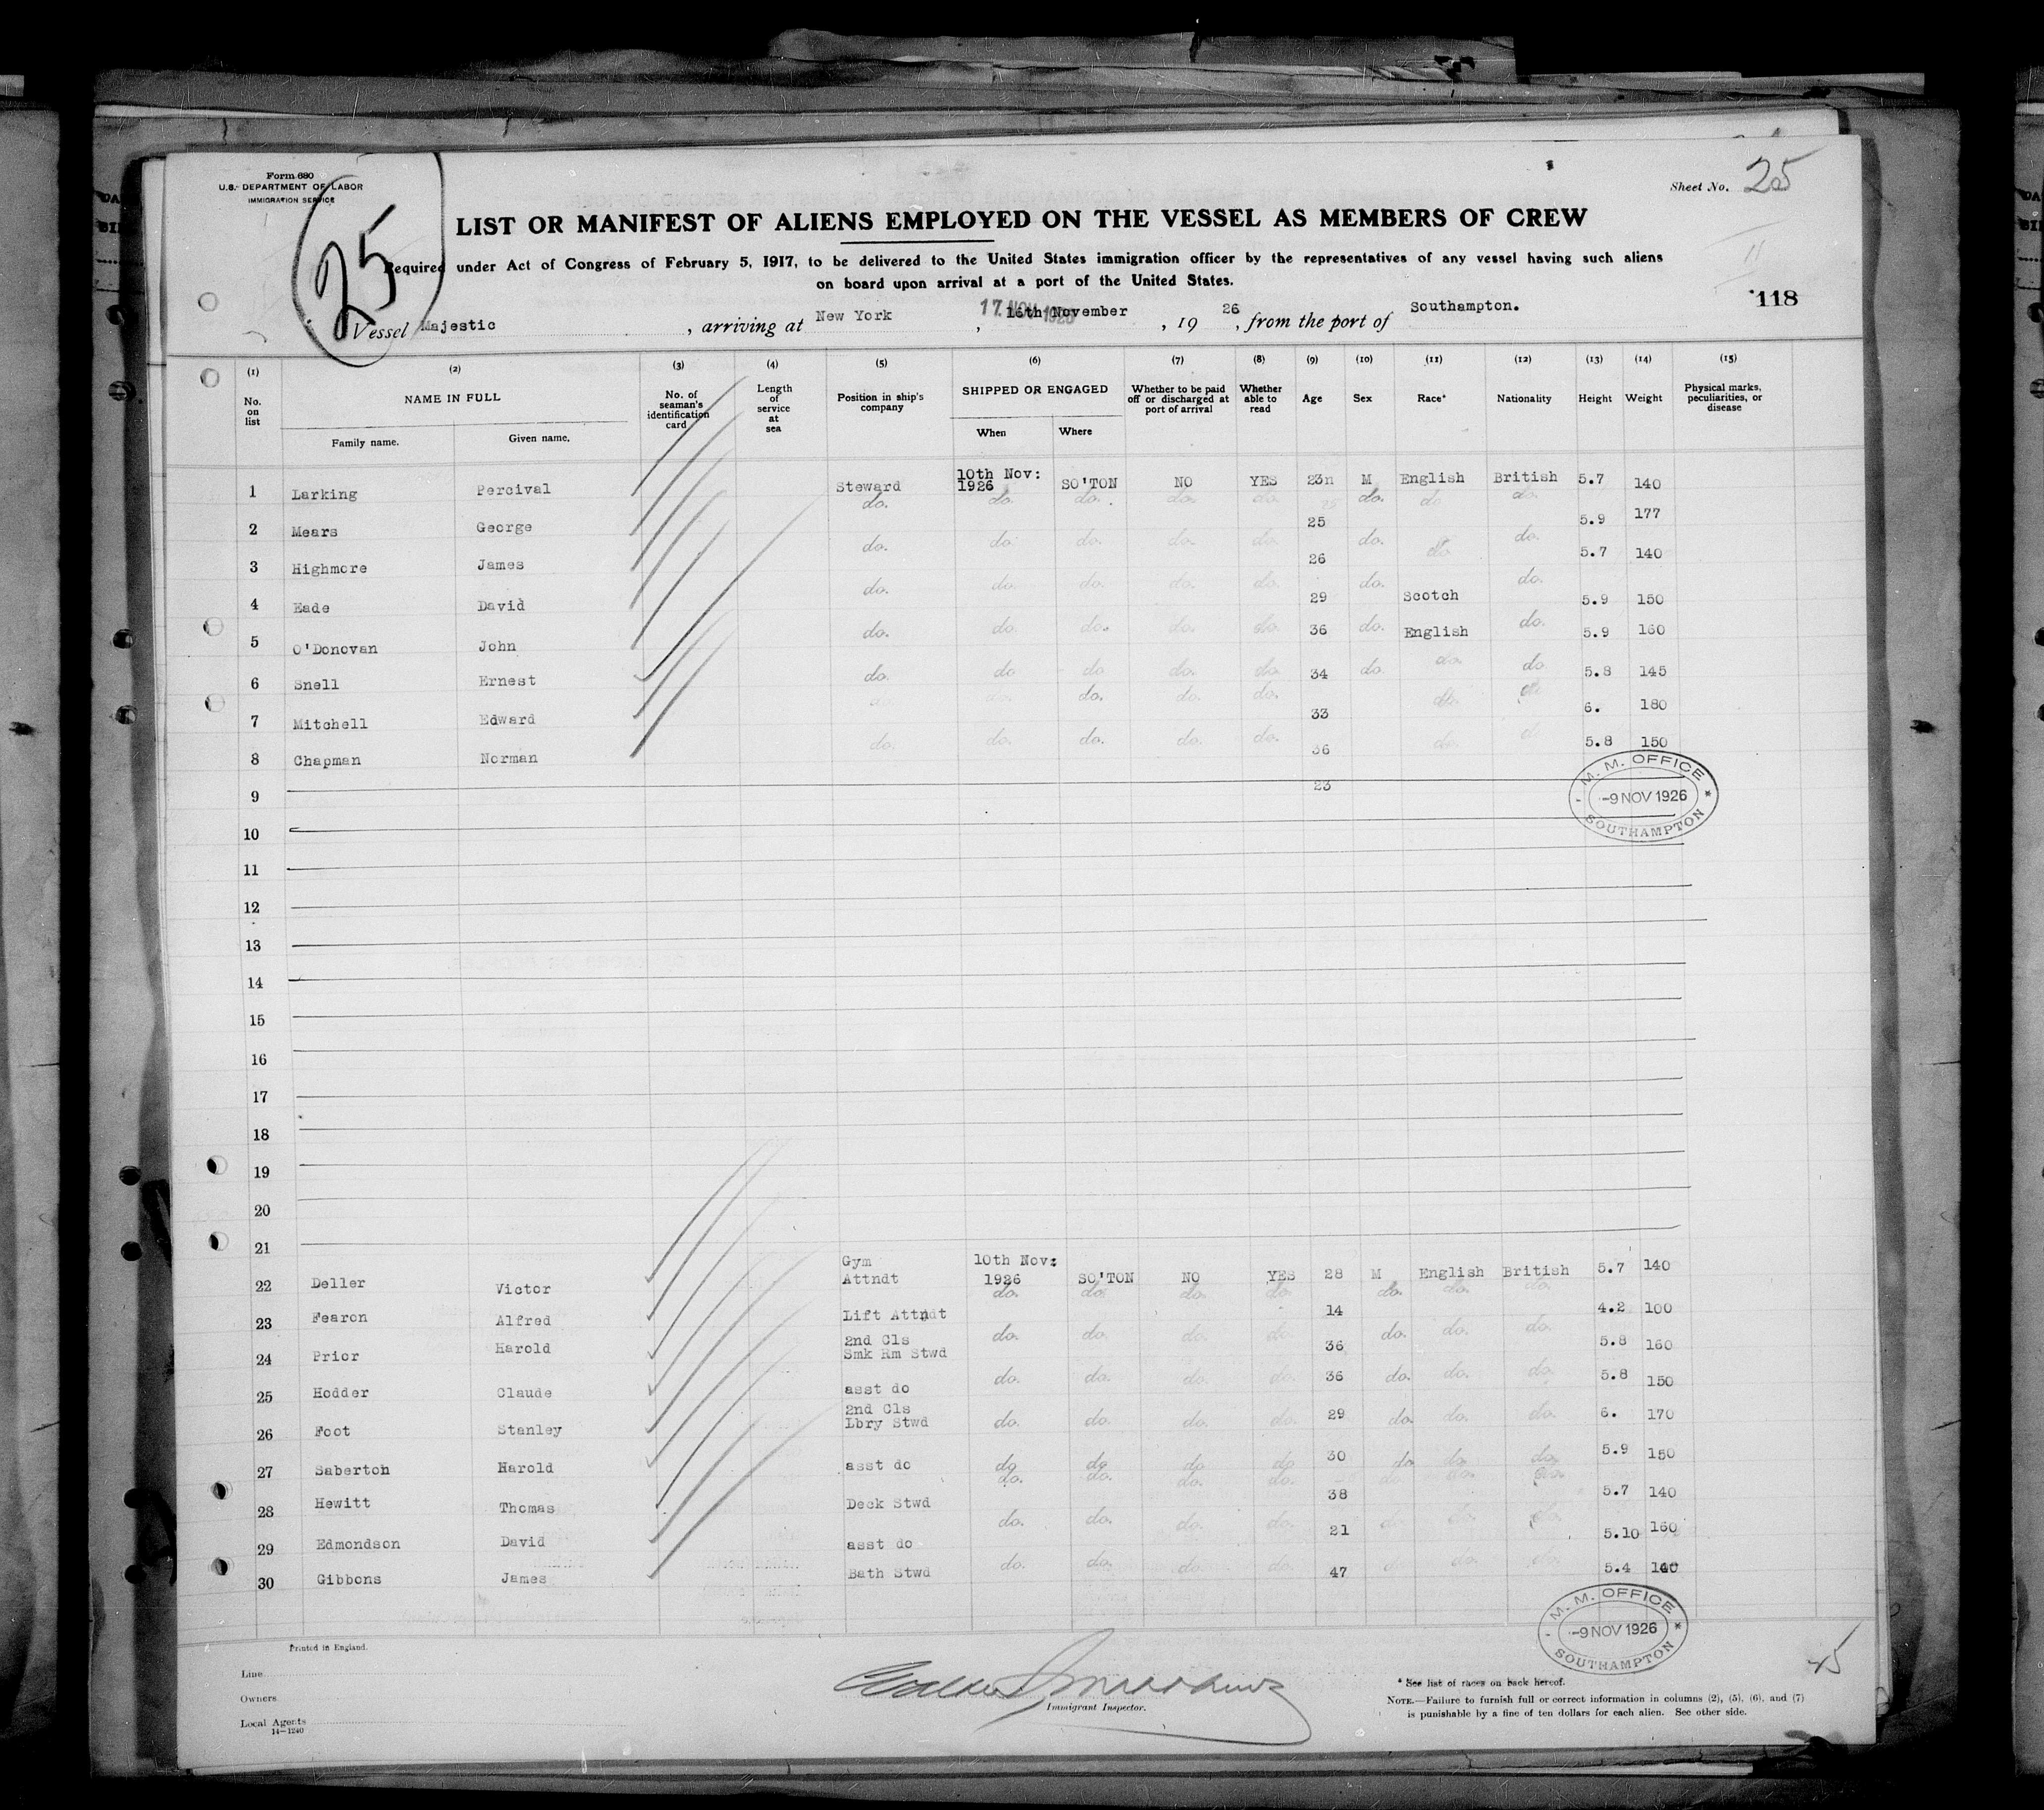 Form 680
U.S. DEPARTMENT OF LABOR
IMMIGRATION SERVICE
25
Sheet No. 25
LIST OR MANIFEST OF ALIENS EMPLOYED ON THE VESSEL AS MEMBERS OF CREW
Required under Act of Congress of February 5, 1917, to be delivered to the United States immigration officer by the representatives of any vessel having such aliens
on board upon arrival at a port of the United States.
118
17 NOV 1926
Vessel Majestic, arriving at New York, 16th November, 1926, from the port of Southampton.
(1) (2) (3) (4) (5) (6) (7) (8) (9) (10) (11) (12) (13) (14) (15)
No. on list NAME IN FULL Family name. Given name. No. of seaman's identification card Length of service at sea Position in ship's company SHIPPED OR ENGAGED When Where Whether to be paid off or discharged at port of arrival Whether able to read Age Sex Race* Nationality Height Weight Physical marks, peculiarities, or disease
1 Larking Percival Steward 10th Nov: 1926 SO'TON NO YES 23n M English British 5.7 140
2 Mears George do. do. do. do. do. 25 do. do. do. 5.9 177
3 Highmore James do. do. do. do. do. 26 do. do. do. 5.7 140
4 Eade David do. do. do. do. do. 29 do. Scotch do. 5.9 150
5 O'Donovan John do. do. do. do. do. 36 do. English do. 5.9 160
6 Snell Ernest do. do do do. do. 34 do. do. do. 5.8 145
7 Mitchell Edward do. do. do. do. do. 33 do. do. 6. 180
8 Chapman Norman do. do. do. do. do. 36 do. d 5.8 150
9 23
M. M. OFFICE
-9 NOV 1926
SOUTHAMPTON
10
11
12
13
14
15
16
17
18
19
20
21
22 Deller Victor Gym Attndt 10th Nov: 1926 SO'TON NO YES 28 M English British 5.7 140
23 Fearon Alfred Lift Attndt do. do. do. do. 14 do. do. do. 4.2 100
24 Prior Harold 2nd Cls Smk Rm Stwd do. do. do. do. 36 do. do. do. 5.8 160
25 Hodder Claude asst do do. do. do. do. 36 do. do. do. 5.8 150
26 Foot Stanley 2nd Cls Lbry Stwd do. do. do. do. 29 do. do. do. 6. 170
27 Saberton Harold asst do do do do do 30 do do do 5.9 150
28 Hewitt Thomas Deck Stwd do. do. do. do. 38 do. do. do. 5.7 140
29 Edmondson David asst do do. do. do. do. 21 do. do. do. 5.10 160
30 Gibbons James Bath Stwd do. do. do. do. 47 do. do. do. 5.4 140
M. M. OFFICE
-9 NOV 1926
SOUTHAMPTON
Printed in England.
Line
Owners
Local Agents
14-1240
Immigrant Inspector.
* See list of races on back hereof.
NOTE.—Failure to furnish full or correct information in columns (2), (5), (6), and (7)
is punishable by a fine of ten dollars for each alien. See other side.